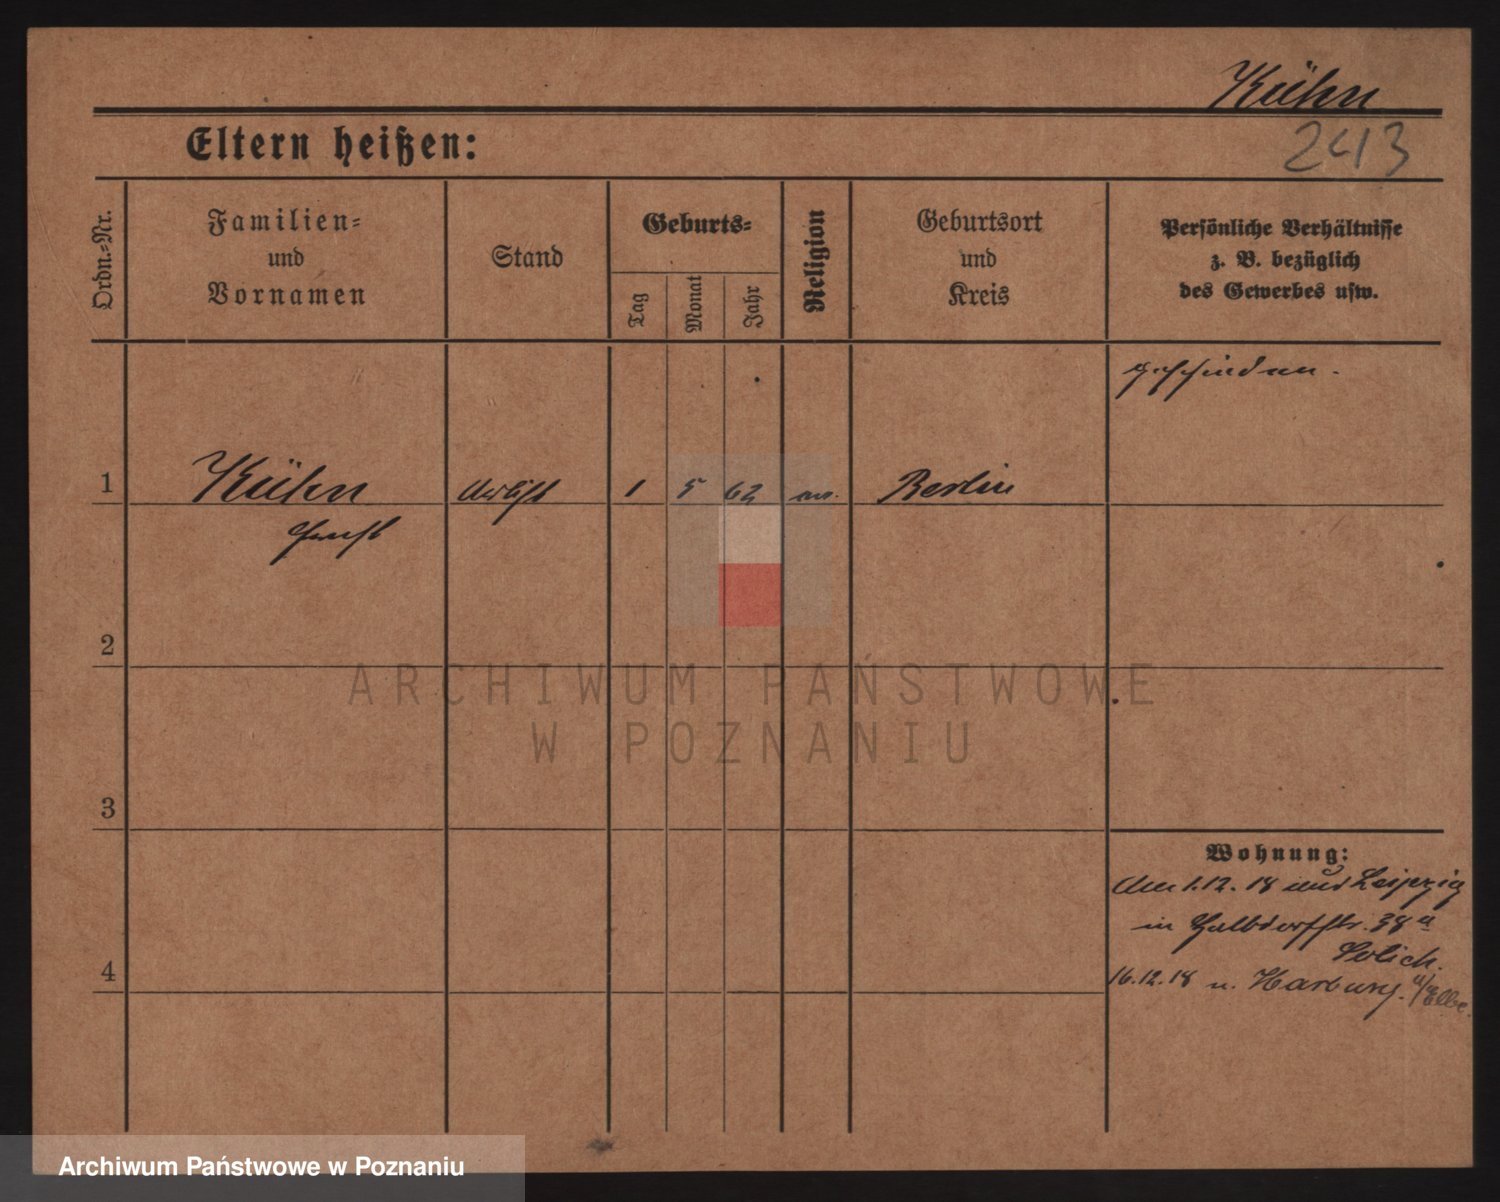 Kühn
2413
Eltern heißen:
Ordn.-Nr.
Familien-
und
Vornamen
Stand
Geburts-
Tag
Monat
Jahr
Religion
Geburtsort
und
Kreis
Persönliche Verhältnisse
z. B. bezüglich
des Gewerbes usw.
geschieden.
1 Kühn Artist 1 5 62 ev. Berlin
Ernst
2
3
Wohnung:
1.12.18 Leipzig
in 38a
16.12.18 n. Harburg. a/Elbe.
4
ARCHIWUM PAŃSTWOWE
W POZNANIU
Archiwum Państwowe w Poznaniu